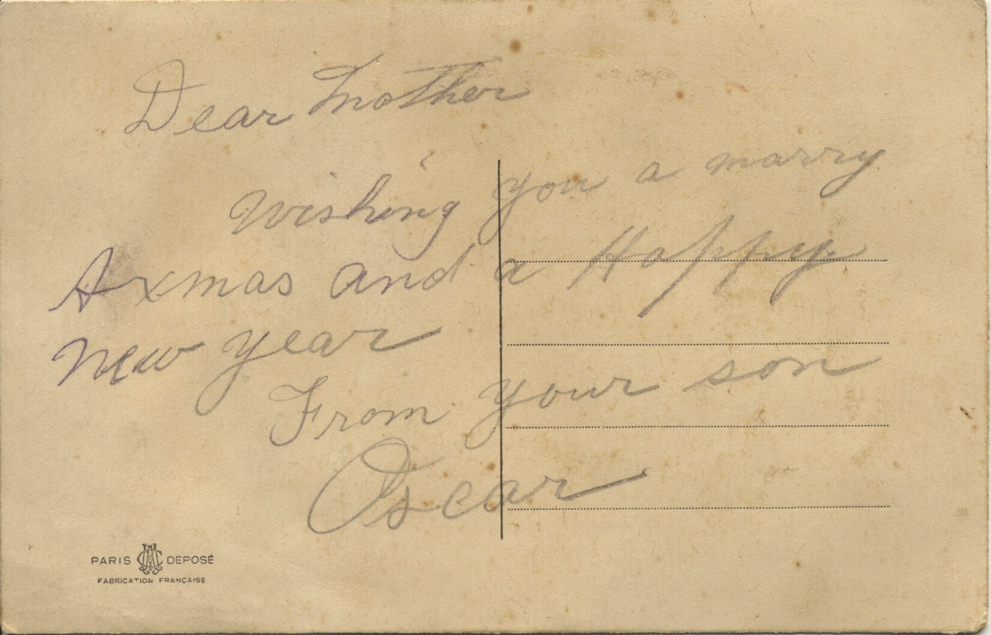 Dear Mother
Wishing you a marry
A xmas and a Happy
New year
From your son
Oscar
PARIS DEPOSÉ
FABRICATION FRANÇAISE